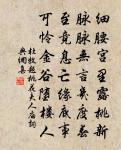 細腰宮里露桃新
脉脉無言幾度春
至竟息亡緣底事
可憐金谷墮樓人
杜牧題桃花夫人廟詞
典網集